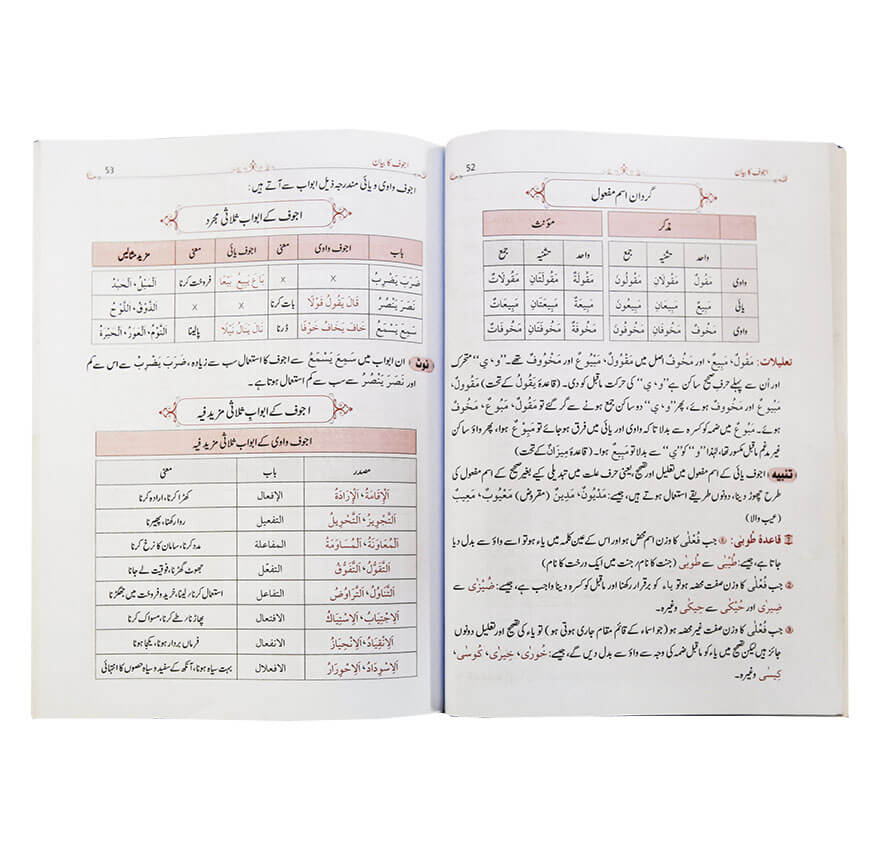 اجوف کا بیان
52
گردان اسم مفعول
مذکر مؤنث
واحد تثنیہ جمع واحد تثنیہ جمع
واوی مَقُولٌ مَقُولَانِ مَقُولُونَ مَقُولَةٌ مَقُولَتَانِ مَقُولَاتٌ
یائی مَبِيعٌ مَبِيعَانِ مَبِيعُونَ مَبِيعَةٌ مَبِيعَتَانِ مَبِيعَاتٌ
واوی مَخُوفٌ مَخُوفَانِ مَخُوفُونَ مَخُوفَةٌ مَخُوفَتَانِ مَخُوفَاتٌ
تعلیلات: مَقُولٌ، مَبِيعٌ، اور مَخُوفٌ اصل میں مَقْوُولٌ، مَبْيُوعٌ اور مَخْوُوفٌ تھے۔ ’’و، ی‘‘ متحرک
اور اُن سے پہلے حرفِ صحیح ساکن ہے ’’و، ی‘‘ کی حرکت ماقبل کو دی۔ (قاعدۂ يَقُولُ کے تحت) مَقُوولٌ،
مَبُيوعٌ اور مَخُووفٌ ہوئے، پھر ’’و، ی‘‘ دو ساکن جمع ہونے سے گر گئے تو مَقُولٌ، مَبُوعٌ، مَخُوفٌ
ہوئے۔ مَبُوعٌ میں ضمہ کو کسرہ سے بدلا تاکہ واوی اور یائی میں فرق ہو جائے تو مَبِوْعٌ ہوا، پھر واؤ ساکن
غیر مدغم ماقبل مکسور تھا، لہٰذا ’’و‘‘ کو ’’ی‘‘ سے بدلا تو مَبِيعٌ ہوا۔ (قاعدۂ مِيزَانٌ کے تحت)
تنبیہ اجوف یائی کے اسم مفعول میں تعلیل اور تصحیح، یعنی حرف علت میں تبدیلی کیے بغیر صحیح کے اسم مفعول کی
طرح چھوڑ دینا، دونوں طریقے استعمال ہوتے ہیں، جیسے: مَدْيُونٌ، مَدِينٌ (مقروض) مَعْيُوبٌ، مَعِيبٌ
(عیب والا)
قاعدۂ طُوبٰی: ① جب فُعْلٰی کا وزن اسم محض ہو اور اس کے عین کلمہ میں یاء ہو تو اسے واؤ سے بدل دیا
جاتا ہے، جیسے: طُيْبٰی سے طُوبٰی (جنت کا نام/ جنت میں ایک درخت کا نام)
② جب فُعْلٰی کا وزن صفت محضہ ہو تو یاء کو برقرار رکھنا اور ماقبل کو کسرہ دینا واجب ہے، جیسے: ضُيْزٰی سے
ضِيزٰی اور حُيْكٰی سے حِيكٰی وغیرہ۔
③ جب فُعْلٰی کا وزن صفت غیر محضہ ہو (جو اسماء کے قائم مقام جاری ہوتی ہو) تو یاء کی تصحیح اور تعلیل دونوں
جائز ہیں لیکن تصحیح میں یاء کو ماقبل ضمہ کی وجہ سے واؤ سے بدل دیں گے، جیسے: خُورٰی، خِيرٰی، كُوسٰی،
كِيسٰی وغیرہ۔
اجوف کا بیان
53
اجوف واوی و یائی مندرجہ ذیل ابواب سے آتے ہیں:
اجوف کے ابواب ثلاثی مجرد
باب اجوف واوی معنی اجوف یائی معنی مزید مثالیں
ضَرَبَ يَضْرِبُ x x بَاعَ يَبِيعُ بَيْعًا فروخت کرنا
نَصَرَ يَنْصُرُ قَالَ يَقُولُ قَوْلًا بات کرنا x x اَلذَّوْقُ،
سَمِعَ يَسْمَعُ خَافَ يَخَافُ خَوْفًا ڈرنا نَالَ يَنَالُ نَيْلًا پالینا اَلنَّوْمُ، اَلْعَوَرُ،
نوٹ ان ابواب میں سَمِعَ يَسْمَعُ سے اجوف کا استعمال سب سے زیادہ، ضَرَبَ يَضْرِبُ سے اس سے کم
اور نَصَرَ يَنْصُرُ سے سب سے کم استعمال ہوتا ہے۔
اجوف کے ابواب ثلاثی مزید فیہ
اجوف واوی کے ابواب ثلاثی مزید فیہ
مصدر باب معنی
اَلْإِقَامَةُ، اَلْإِرَادَةُ الإفعال کھڑا کرنا، ارادہ کرنا
اَلتَّجْوِيزُ، اَلتَّحْوِيلُ التفعیل روا رکھنا، پھیرنا
اَلْمُعَاوَنَةُ، اَلْمُسَاوَمَةُ المفاعلة مدد کرنا، سامان کا نرخ کرنا
اَلتَّقَوُّلُ، اَلتَّفَوُّقُ التفعّل جھوٹ گھڑنا، فوقیت لے جانا
اَلتَّنَاوُلُ، اَلتَّرَاوُضُ التفاعل استعمال کرنا/ لینا، خرید و فروخت میں جھگڑنا
اَلِاجْتِيَابُ، اَلِاسْتِيَاكُ الافتعال پھاڑنا، طے کرنا، مسواک کرنا
اَلِانْقِيَادُ، اَلِانْحِيَازُ الانفعال فرماں بردار ہونا، یکجا ہونا
اَلِاسْوِدَادُ، اَلِاحْوِرَارُ الافعلال بہت سیاہ ہونا، آنکھ کے سفید و سیاہ حصوں کا انتہائی